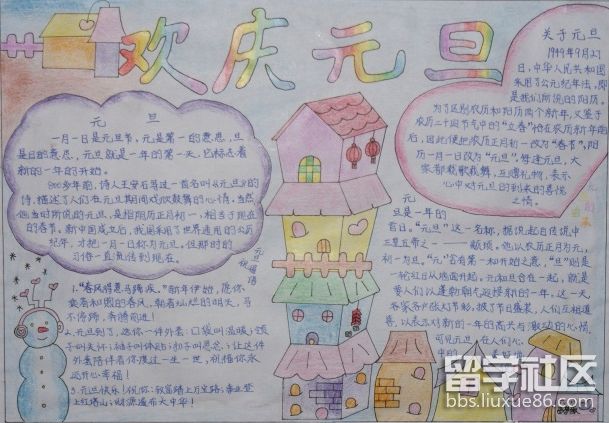 欢庆元旦
元 旦
一月一日是元旦节,元是第一的意思,旦
是日的意思,元旦就是一年的第一天,它标志着
新的一年的开始。
900多年前,诗人王安石写过一首名叫《元旦》的
诗,描述了人们在元旦期间的欢欣鼓舞的心情。当然
他当时所说的元旦,是指阴历正月初一,相当于现在
的春节。新中国成立后,我国采用了世界通用的公历
纪年,才把一月一日称为元旦。但那时的
习俗一直流传到现在。
元旦
祝福语
关于元旦
1949年9月27
日,中华人民共和国
采用了公元纪年法,即
是我们所说的阳历,
为了区别农历和阳历两个新年,又鉴于
农历二十四节气中的“立春”恰在农历新年前
后,因此便把农历正月初一改为“春节”,阳
历一月一日改为“元旦”。每逢元旦,大
家都载歌载舞,互赠礼物,表示
心中对元旦的到来的喜悦
之情。
元
旦是一年的
首日。“元旦”这一名称,据说起自传说中
三皇五帝之一——颛顼。他以农历正月为元,
初一为旦。“元”含有第一和开始之意,“旦”则是
一轮红日从地面升起。元和旦合在一起,就是
要人们以蓬勃朝气迎接新的一年。这一天
客家户户张灯节彩,披了节日盛装,人们互相道
喜,以表示对新的一年的高兴与激动的心情。
可见元旦,在人们心
中的
1.“春风得意马蹄疾。”新年伊始,愿你
乘着和煦的春风,朝着灿烂的明天,马
不停蹄,奔腾前进!
2.元旦到了,送你一件外套:口袋叫温暖;领
子叫关怀;袖子叫体贴;扣子叫思念;让这件
外套陪伴着你度过一生一世,祝福你永
远开心幸福!
3.元旦快乐!祝你:致富踏上万宝路;事业登
上红塔山;财源遍布大中华!
留学社区
bbs.liuxue86.com